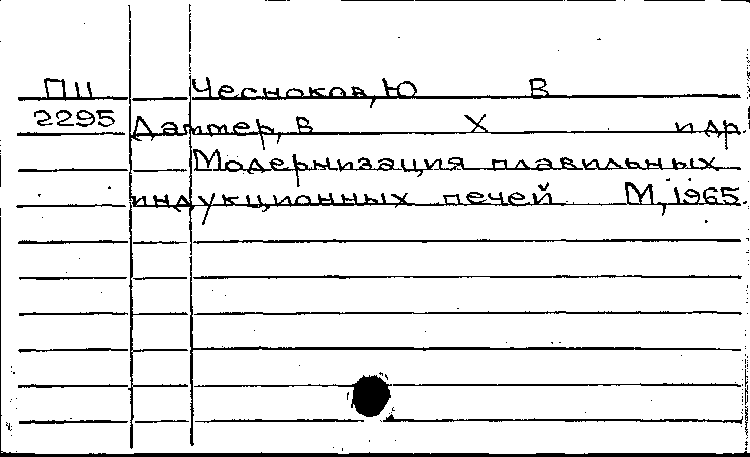 П11 Чесноков, Ю В
2295 Даттер, В Х и др.
Модернизация плавильных
индукционных печей М, 1965.